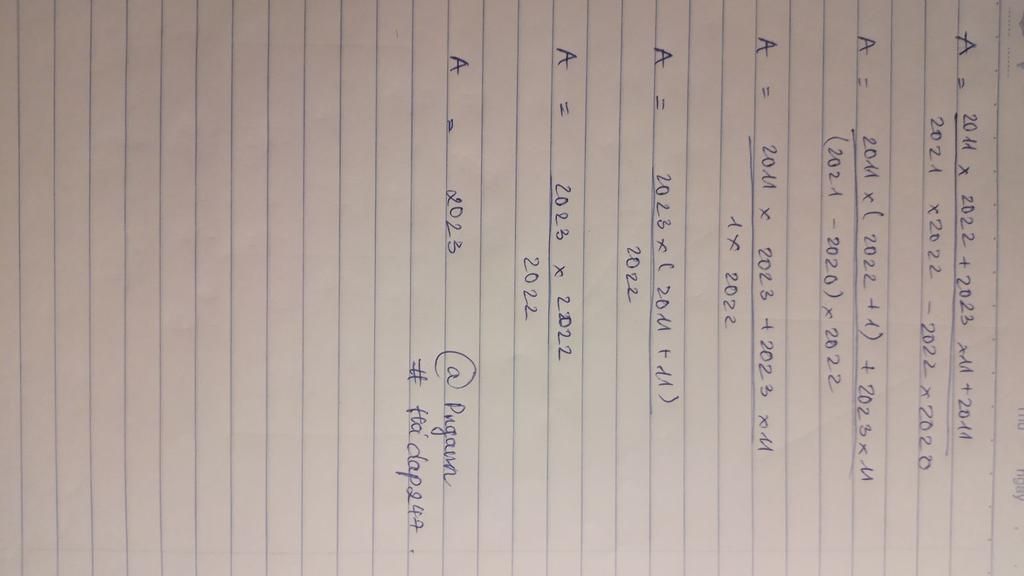 Thứ
ngày
A = 2011 x 2022 + 2023 x 11 + 2011
2021 x 2022 - 2022 x 2020
A = 2011 x ( 2022 + 1) + 2023 x 11
(2021 - 2020) x 2022
A = 2011 x 2023 + 2023 x 11
1 x 2022
A = 2023 x ( 2011 + 11)
2022
A = 2023 x 2022
2022
A = 2023
@ Pngann
# Hỏi dap247.